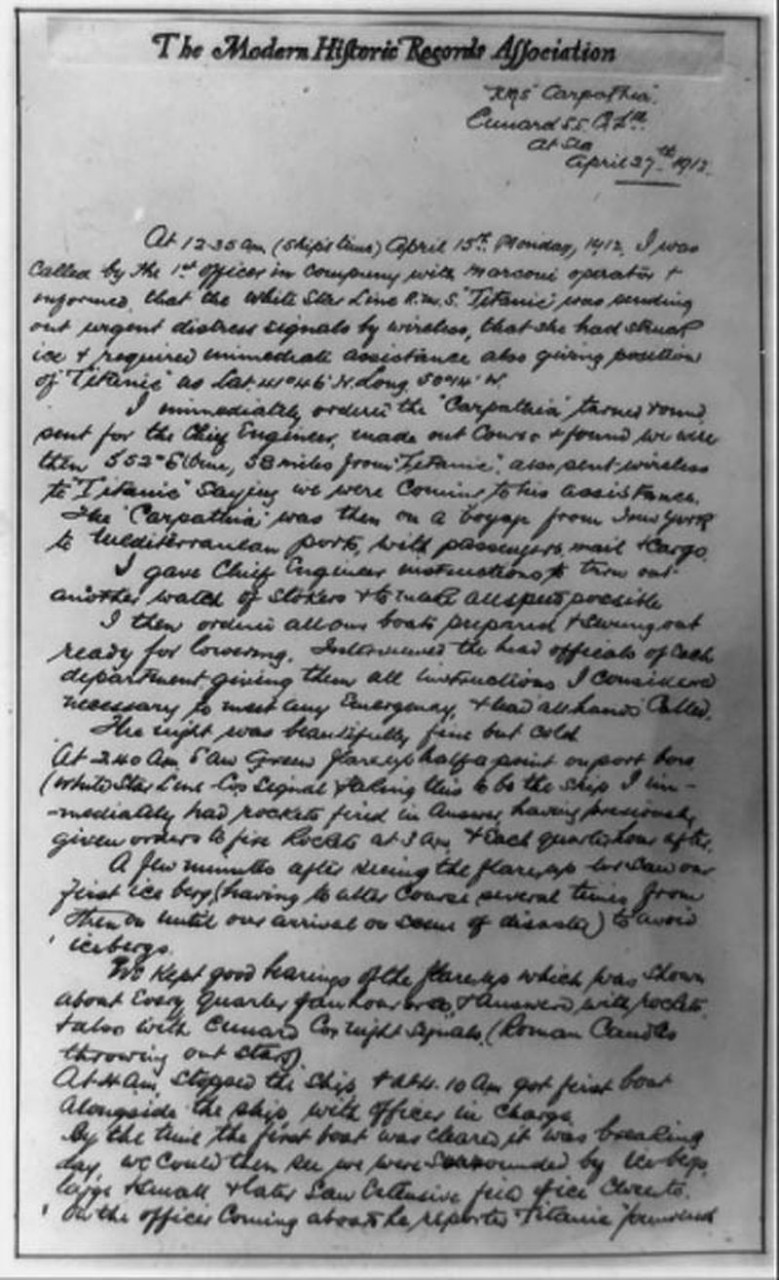 The Modern Historic Records Association
RMS "Carpathia".
Cunard S.S. Co Ltd.
At Sea
April 27th 1912.
At 12.35 am (Ships time) April 15th Monday, 1912, I was
called by the 1st officer in company with marconi operator &
informed, that the White Star Line R.M.S. "Titanic" was sending
out urgent distress signals by wireless, that she had struck
ice & required immediate assistance also giving position
of "Titanic" as Lat. 41°46' N. Long. 50°14' W.
I immediately ordered the "Carpathia" turned round,
sent for the Chief Engineer, made out Course & found we were
then S 52° E 58 miles from "Titanic", also sent wireless
to "Titanic" saying we were coming to his assistance.
The "Carpathia" was then on a voyage from New York
to Mediterranean ports, with passengers, mail & Cargo.
I gave Chief Engineer instructions to turn out
another watch of stokers & to make all speed possible
I then ordered all our boats prepared & swung out
ready for lowering. Interviewed the head officials of each
department giving them all instructions I considered
necessary to meet any Emergency, & had all hands called.
The night was beautifully fine but cold
At 2.40 Am saw Green flare half a point on port bow
(White Star Line Cos Signal) & taking this to be the ship I im-
-mediately had rockets fired in Answer, having previously
given orders to fire Rockets at 3 Am, & Each quarter hour after.
A few minutes after seeing the flareup we saw our
first ice berg, (having to alter Course several times from
then on until our arrival on scene of disaster) to avoid
icebergs.
We kept good bearings of the flareup which was shown
about Every quarter of an hour or so, & Answered with rockets
& also with Cunard Cos night signals. (Roman Candles
throwing out stars)
At 4 Am, stopped the ship, & at 4.10 Am got first boat
alongside the ship, with officer in charge
By the time the first boat was cleared it was breaking
day, we could then see we were surrounded by ice bergs,
large & small & later saw Extensive field of ice
On the officer coming aboard he reported "Titanic" foundered